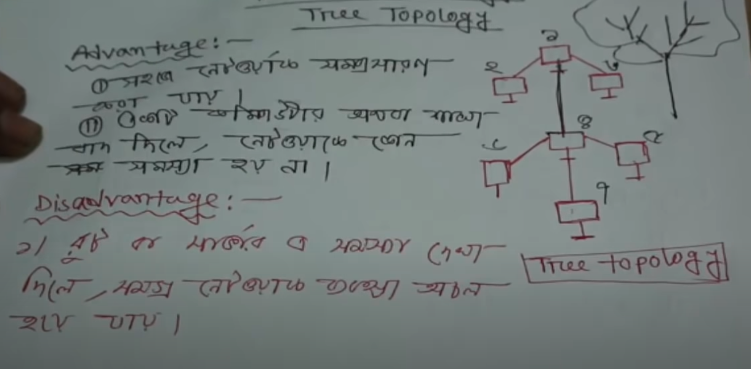 Tree Topology
Advantage:-
① সহজে নেটওয়ার্ক সম্প্রসারণ
করা যায়।
⑪ একটি কম্পিউটার অথবা শাখা
বাদ দিলে, নেটওয়ার্কে কোন
সমস্যা হয় না।
Disadvantage:-
১। রুট বা সার্ভার এ সমস্যা দেখা
দিলে, সমগ্র নেটওয়ার্ক ব্যবস্থা অচল
হয়ে যায়।
১
২
৩
৪
৫
৬
Tree topology